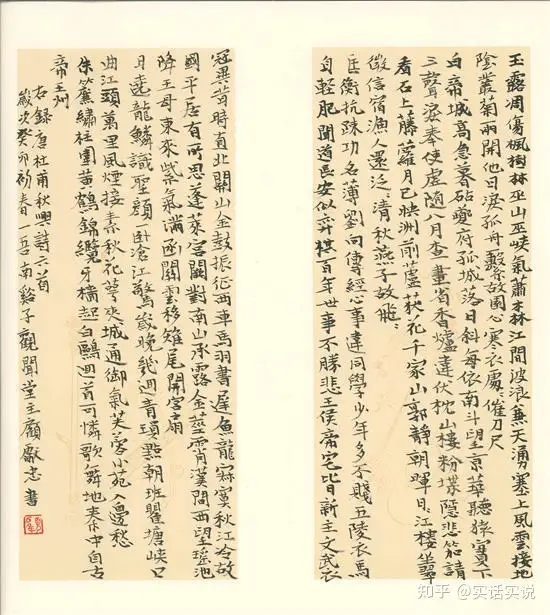 玉露凋傷楓樹林巫山巫峽氣蕭森江間波浪兼天湧塞上風雲接地
陰叢菊兩開他日淚孤舟繫故園心寒衣處〻催刀尺
白帝城高急暮砧夔府孤城落日斜每依南斗望京華聽猿實下
三聲淚奉使虛隨八月查畫省香爐違伏枕山樓粉堞隱悲笳請
看石上藤蘿月已映洲前蘆荻花千家山郭靜朝暉日〻江樓坐翠
微信宿漁人還泛〻清秋燕子故飛〻
匡衡抗疏功名薄劉向傳經心事違同學少年多不賤五陵衣馬
自輕肥聞道長安似弈棋百年世事不勝悲王侯第宅皆新主文武衣
冠異昔時直北關山金鼓振征西車馬羽書遲魚龍寂寞秋江冷故
國平居有所思蓬萊宮闕對南山承露金莖霄漢間西望瑤池
降王母東來紫氣滿函關雲移雉尾開宮扇
日遶龍鱗識聖顏一卧滄江驚歲晚幾迴青瑣點朝班瞿塘峽口
曲江頭萬里風煙接素秋花萼夾城通御氣芙蓉小苑入邊愁
朱簾繡柱圍黃鶴錦纜牙檣起白鷗迴首可憐歌舞地秦中自古
帝王州
右錄唐杜甫秋興詩六首
歲次癸卯初春一吾南谿子觀聞堂主顧獻忠書
知乎 @实话实说